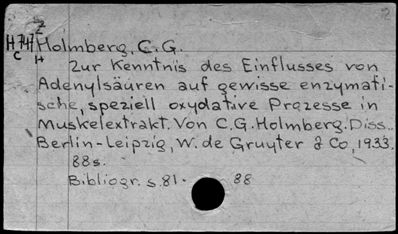 H74z Holmberg, C.G.
C H
Zur Kenntnis des Einflusses von
Adenylsäuren auf gewisse enzymati-
sche, speziell oxydative Prozesse in
Muskelextrakt. Von C.G. Holmberg. Diss..
Berlin-Leipzig, W. de Gruyter & Co, 1933.
88s.
Bibliogr. s. 81 - 88